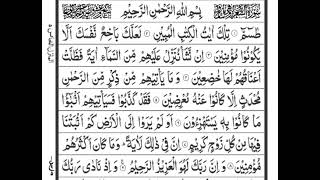 بِسْمِ اللهِ الرَّحْمٰنِ الرَّحِيْمِ
طٰسٓمّٓ ۝ تِلْكَ اٰيٰتُ الْكِتٰبِ الْمُبِيْنِ ۝ لَعَلَّكَ بَاخِعٌ نَّفْسَكَ اَلَّا
يَكُوْنُوْا مُؤْمِنِيْنَ ۝ اِنْ نَّشَاْ نُنَزِّلْ عَلَيْهِمْ مِّنَ السَّمَآءِ اٰيَةً فَظَلَّتْ
اَعْنَاقُهُمْ لَهَا خٰضِعِيْنَ ۝ وَمَا يَاْتِيْهِمْ مِّنْ ذِكْرٍ مِّنَ الرَّحْمٰنِ
مُحْدَثٍ اِلَّا كَانُوْا عَنْهُ مُعْرِضِيْنَ ۝ فَقَدْ كَذَّبُوْا فَسَيَاْتِيْهِمْ اَنْۢبٰٓؤُا
مَا كَانُوْا بِهٖ يَسْتَهْزِءُوْنَ ۝ اَوَلَمْ يَرَوْا اِلَى الْاَرْضِ كَمْ اَنْۢبَتْنَا
فِيْهَا مِنْ كُلِّ زَوْجٍ كَرِيْمٍ ۝ اِنَّ فِيْ ذٰلِكَ لَاٰيَةً ؕ وَمَا كَانَ اَكْثَرُهُمْ
مُّؤْمِنِيْنَ ۝ وَاِنَّ رَبَّكَ لَهُوَ الْعَزِيْزُ الرَّحِيْمُ ۝ وَاِذْ نَادٰى رَبُّكَ